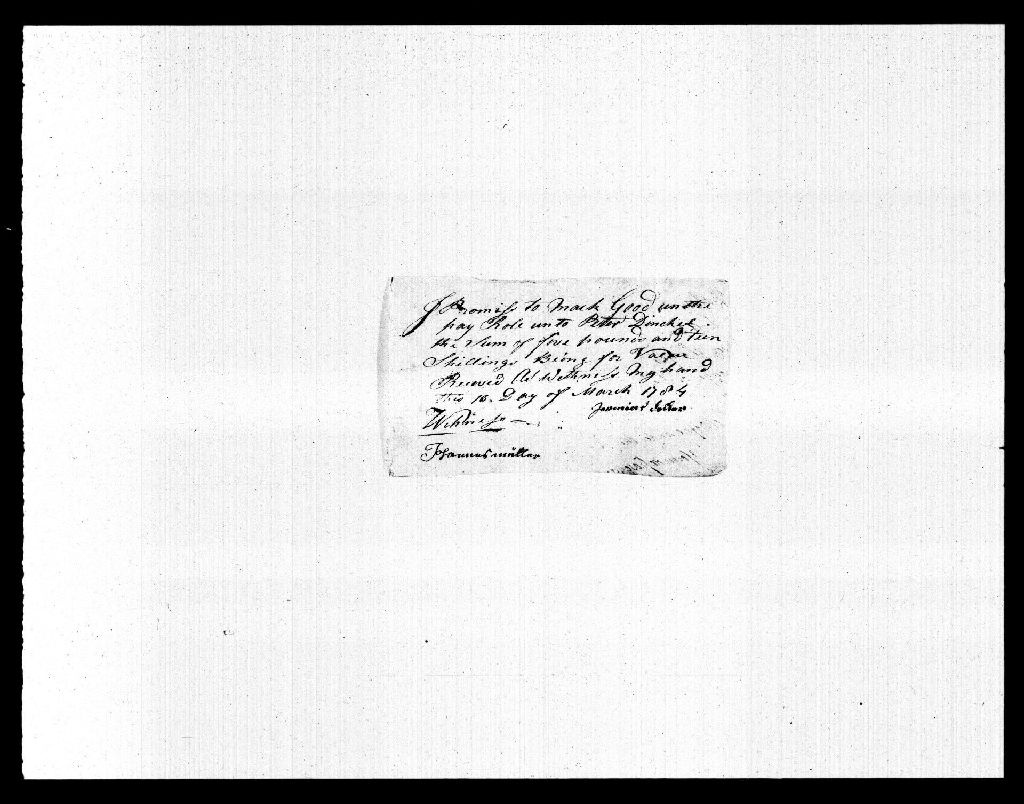 I Promiss to mack Good on the
pay Role unto Peter
the Sum of five pounds and tuen
Shillings Being for Value
Receved As Wittness my hand
this 10 Day of March 1784
Jeremias
Wittness
Johannes müller